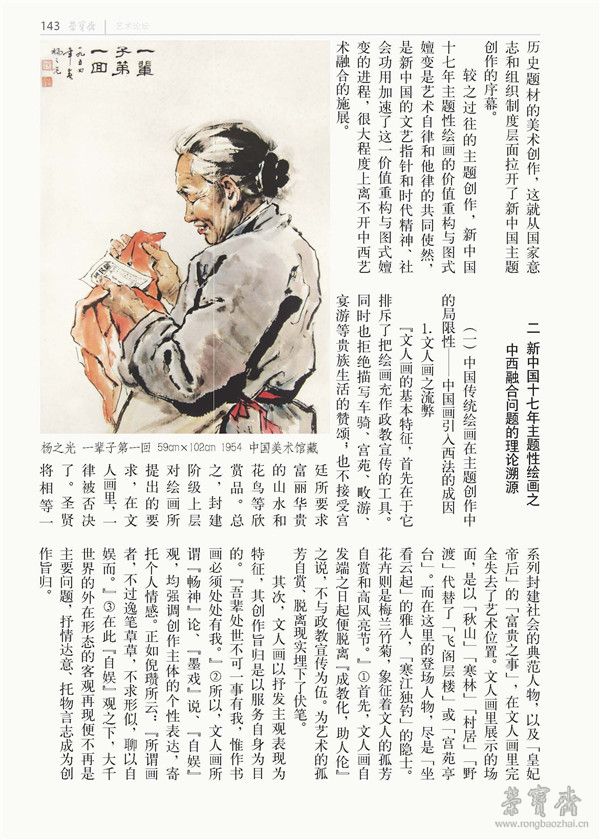 143 荣宝斋 艺术论坛
历史题材的美术创作，这就从国家意
志和组织制度层面拉开了新中国主题
创作的序幕。
较之过往的主题创作，新中国
十七年主题性绘画的价值重构与图式
嬗变是艺术自律和他律的共同使然，
是新中国的文艺指针和时代精神、社
会功用加速了这一价值重构与图式嬗
变的进程，很大程度上离不开中西艺
术融合的施展。
一辈
子第
一回
一九五四
年
杨之光
杨之光 一辈子第一回 59cm×102cm 1954 中国美术馆藏
二 新中国十七年主题性绘画之
中西融合问题的理论溯源
（一）中国传统绘画在主题创作中
的局限性——中国画引入西法的成因
1.文人画之流弊
『文人画的基本特征，首先在于它
排斥了把绘画充作政教宣传的工具。
同时也拒绝描写车骑、宫苑、畋游、
宴游等贵族生活的赞颂，也不接受宫
廷所要求
富丽华贵
的山水和
花鸟等欣
赏品。总
之，封建
阶级上层
对绘画所
提出的要
求，在文
人画里，一
律被否决
了。圣贤
将相等一
系列封建社会的典范人物，以及「皇妃
帝后」的「富贵之事」，在文人画里完
全失去了艺术位置。文人画里展示的场
面，是以「秋山」「寒林」「村居」「野
渡」代替了「飞阁层楼」或「宫苑亭
台」。而在这里的登场人物，尽是「坐
看云起」的雅人，「寒江独钓」的隐士。
花卉则是梅兰竹菊，象征着文人的孤芳
自赏和高风亮节。』①首先，文人画自
发端之日起便脱离『成教化，助人伦』
之说，不与政教宣传为伍。为艺术的孤
芳自赏、脱离现实埋下了伏笔。
其次，文人画以抒发主观表现为
特征，其创作旨归是以服务自身为目
的。『吾辈处世不可一事有我，惟作书
画必须处处有我。』②所以，文人画所
谓『畅神』论、『墨戏』说、『自娱』
观，均强调创作主体的个性表达，寄
托个人情感。正如倪瓒所云：『所谓画
者，不过逸笔草草，不求形似，聊以自
娱而。』③在此『自娱』观之下，大千
世界的外在形态的客观再现便不再是
主要问题，抒情达意、托物言志成为创
作旨归。
荣宝斋
www.rongbaozhai.cn